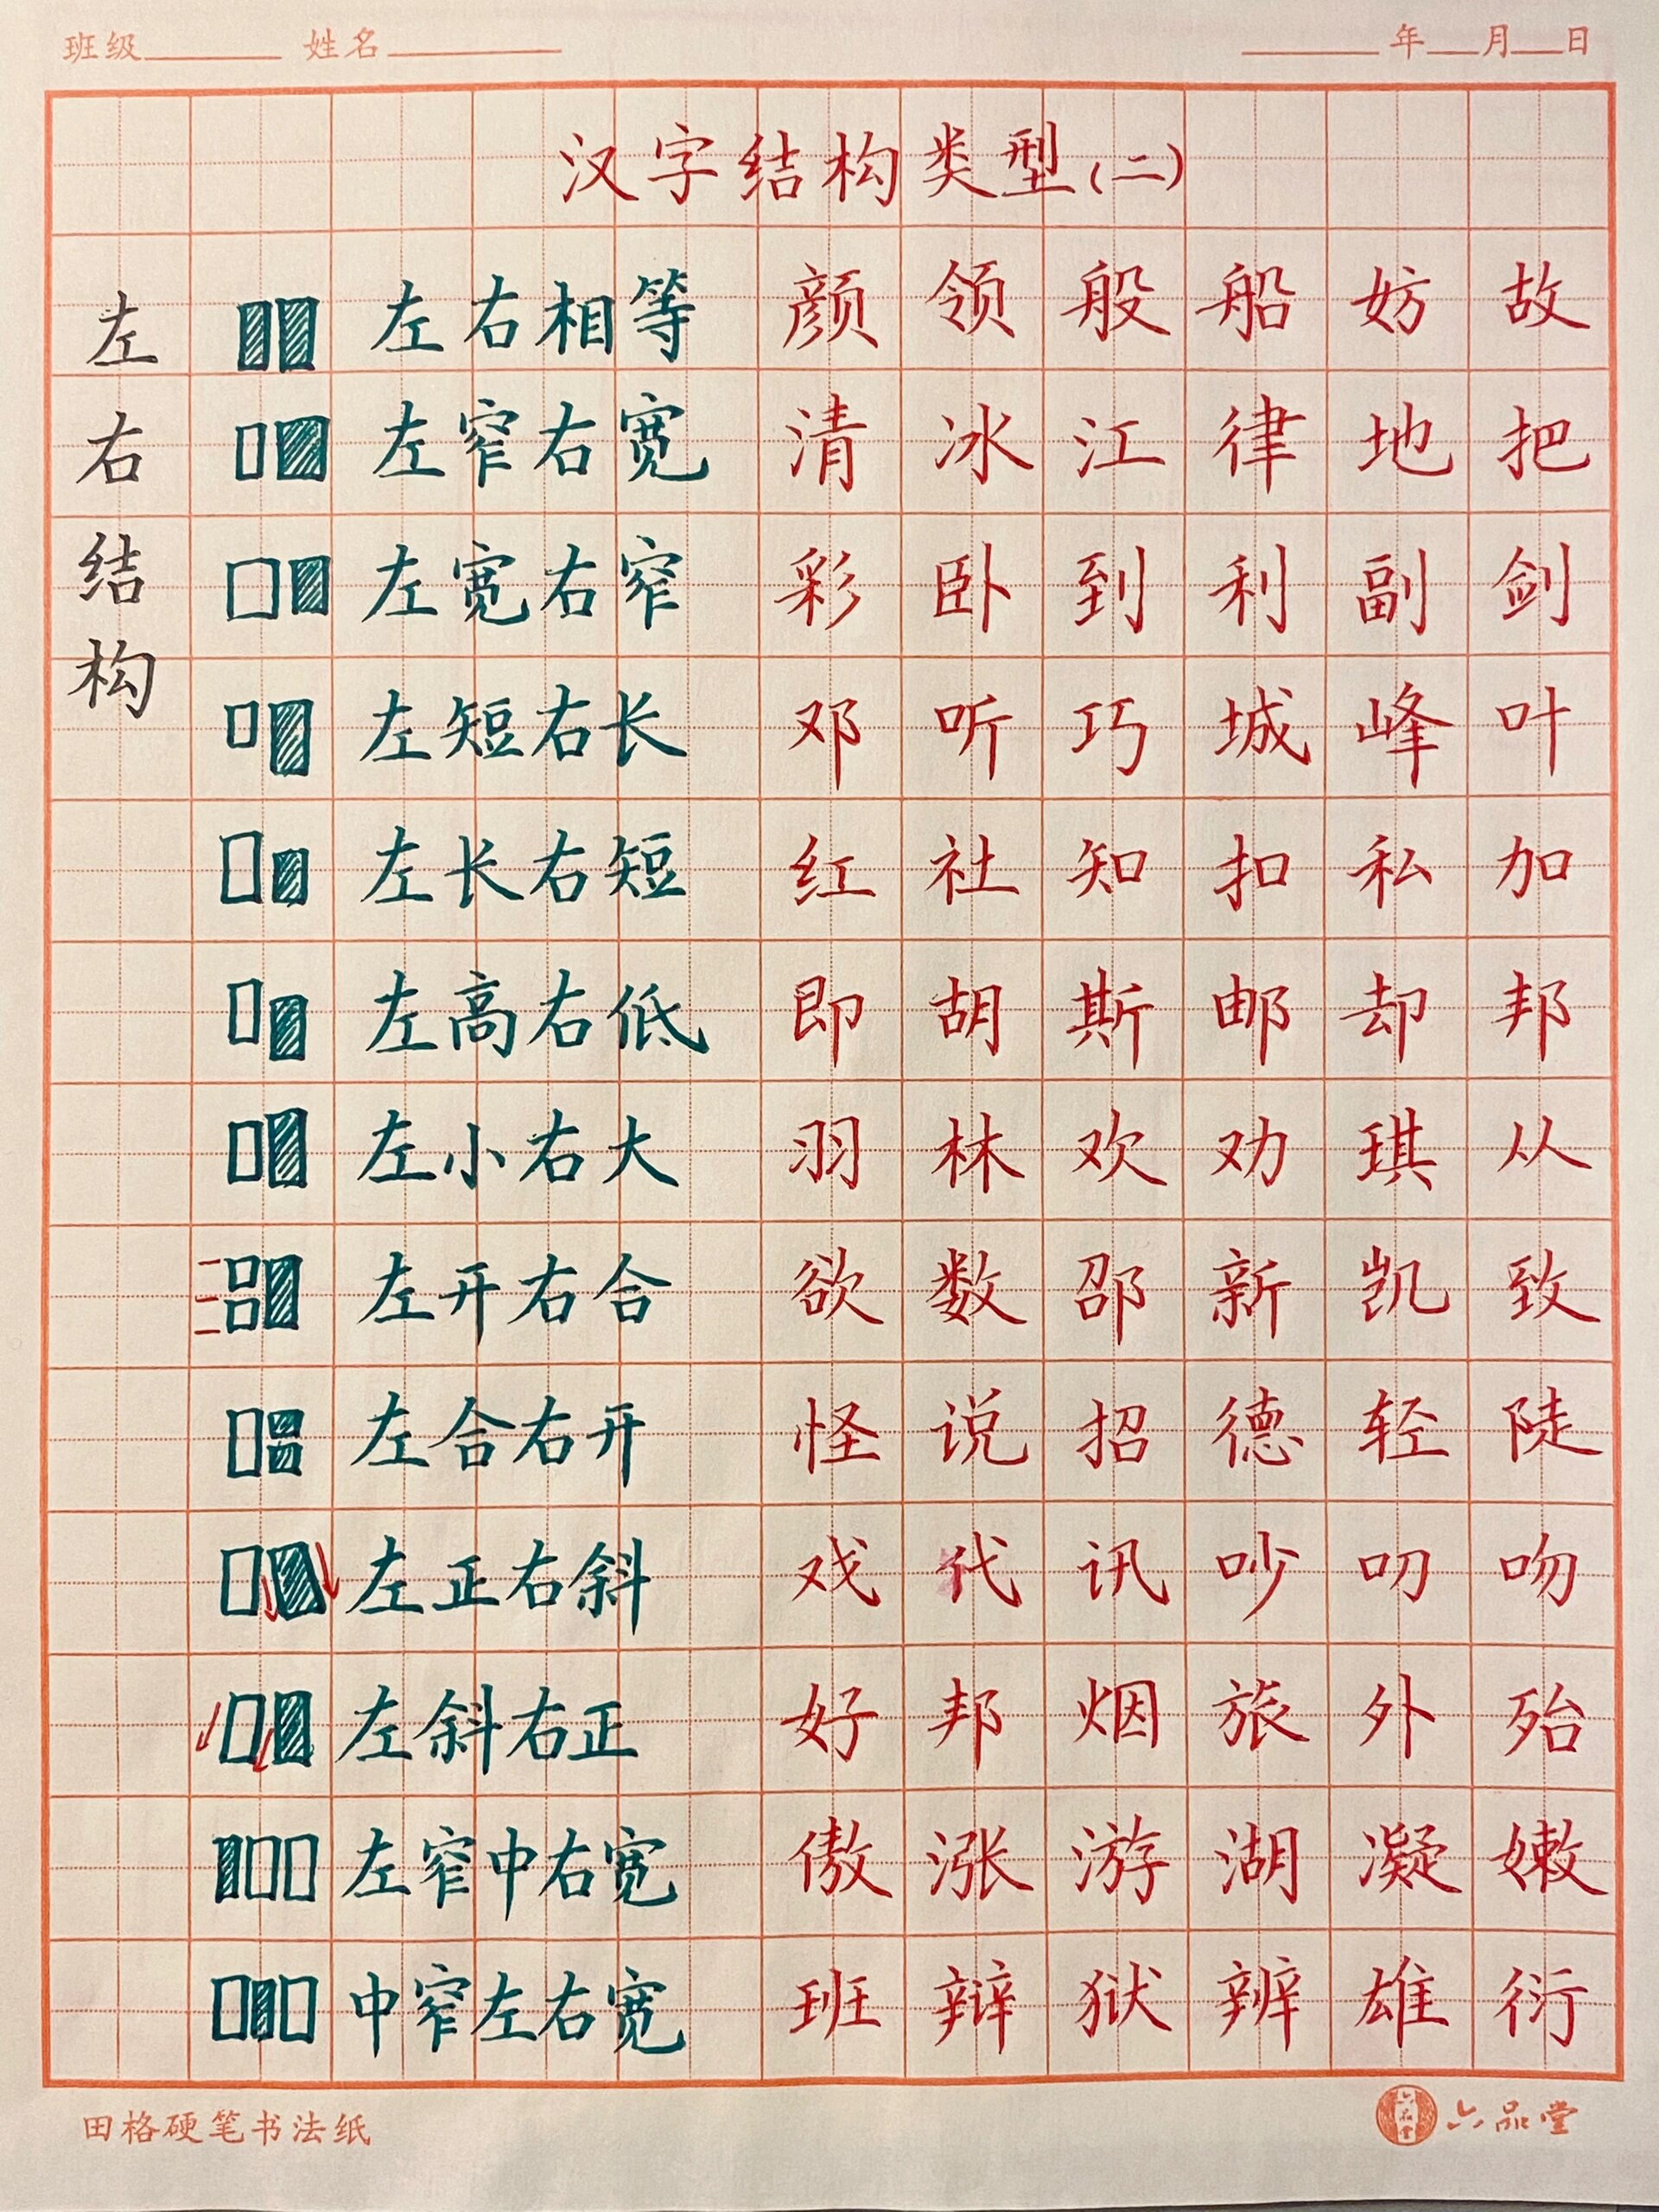 班级 姓名 年 月 日
汉字结构类型(二)
左右结构
左右相等 颜 领 般 船 妨 故
左窄右宽 清 冰 江 律 地 把
左宽右窄 彩 卧 到 利 副 剑
左短右长 邓 听 巧 城 峰 叶
左长右短 红 社 知 扣 私 加
左高右低 即 胡 斯 邮 却 邦
左小右大 羽 林 欢 劝 琪 从
左开右合 欲 数 邵 新 凯 致
左合右开 怪 说 招 德 轻 陡
左正右斜 戏 代 讯 吵 叨 吻
左斜右正 好 邦 烟 旅 外 殆
左窄中右宽 傲 涨 游 湖 凝 嫩
中窄左右宽 班 辩 狱 辨 雄 衍
田格硬笔书法纸 六品堂 六品堂